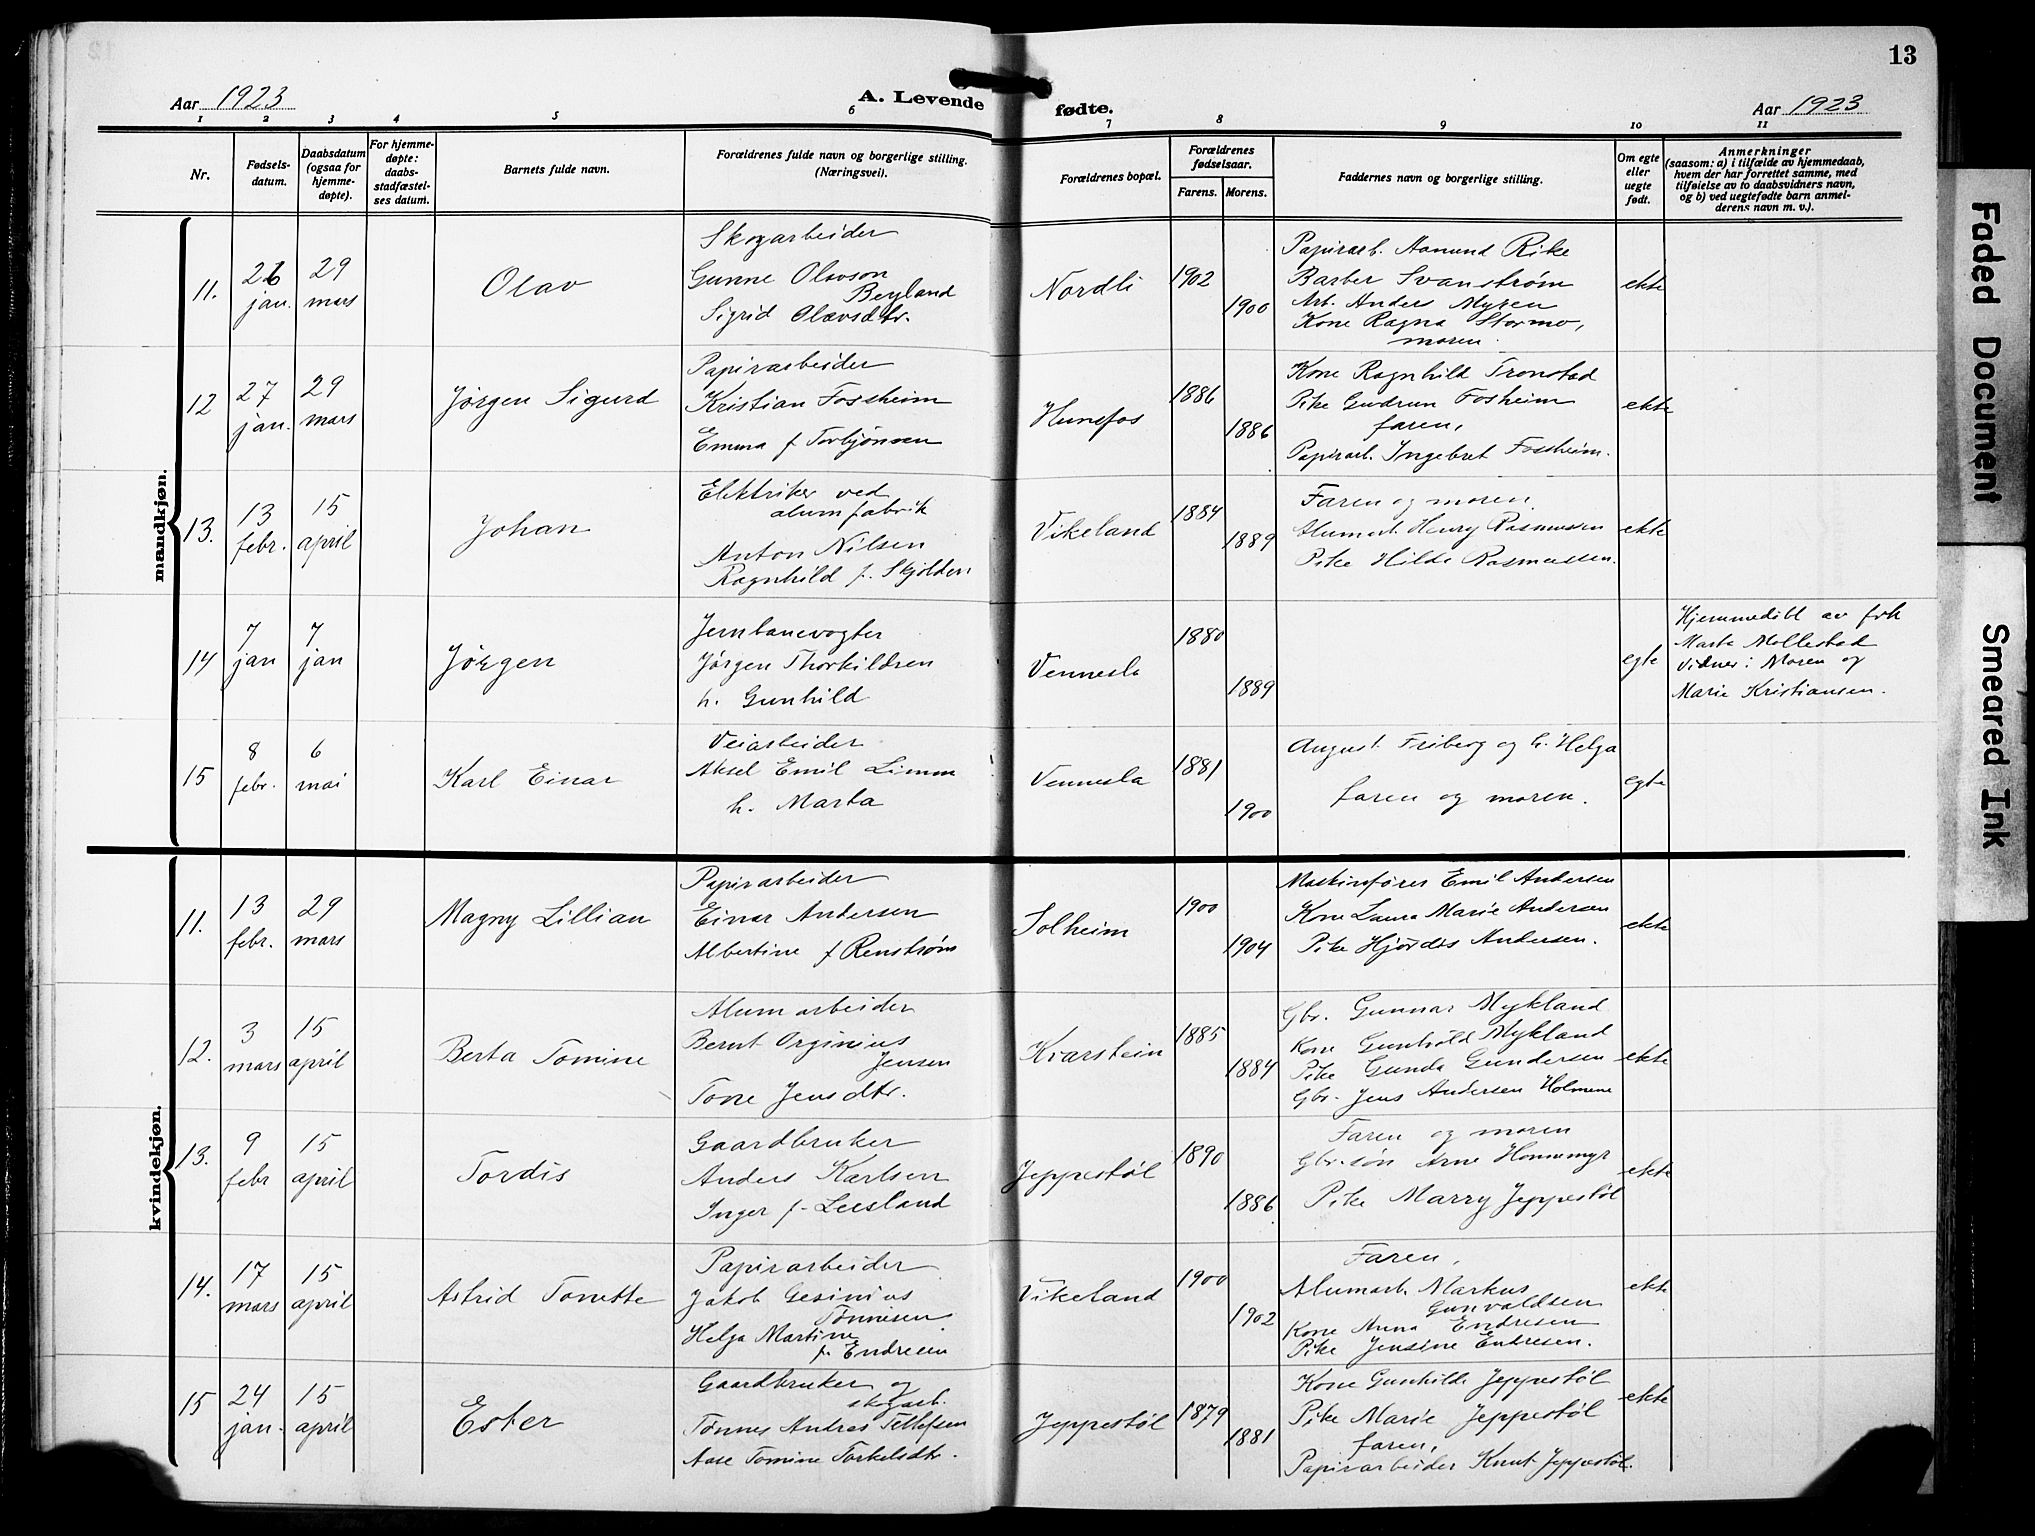 13
Aar 1923
A. Levende fødte.
Aar 1923
1 2 3 4 5 6 7 8 9 10 11
Nr.
Fødsels-
datum.
Daabsdatum
(ogsaa for
hjemme-
døpte).
For hjemme-
døpte:
daabs-
stadfæstel-
ses datum.
Barnets fulde navn.
Forældrenes fulde navn og borgerlige stilling.
(Næringsvei).
Forældrenes bopæl.
Forældrenes
fødselsaar.
Farens. Morens.
Faddernes navn og borgerlige stilling.
Om egte
eller
uegte
født.
Anmerkninger
(saasom: a) i tilfælde av hjemmedaab,
hvem der har forrettet samme, med
tilføielse av to daabsvidners navn,
og b) ved uegtefødte barn anmel-
derens navn m. v.).
mandkjøn.
11.
26
jan.
29
mars
Olav
Skogarbeider
Gunne Olavson
Beyland
Sigrid Olavsdtr.
Nordli
1902
1900
Papirarb. Aamund Rike
Barber Svanstrøm
Arb. Anders Myren
Kone Ragna Stormo,
moren.
ekte
12
27
jan.
29
mars
Jørgen Sigurd
Papirarbeider
Kristian Fossheim
Emma f. Torbjønsen
Hunsfos
1886
1886
Kone Ragnhild Tronstad
Pike Gudrun Fosheim
faren,
Papirarb. Ingebret Fossheim.
ekte
13.
13
febr.
15
april
Johan
Elektriker ved
alumfabrik
Anton Nilsen
Ragnhild f. Skjolden
Vikeland
1884
1889
Faren og moren.
Alumarb. Henry Rasmussen
Pike Hilda Rasmussen.
ekte
14
7
jan
7
jan
Jørgen
Jernbanevogter
Jørgen Thorkildsen
h. Gunhild
Vennesla
1880
1889
egte
Hjemmedøbt av frk
Marta Mollestad
Vidner: Moren og
Marie Kristiansen.
15
8
febr.
6
mai
Karl Einar
Veiarbeider
Aksel Emil Limm
h. Marta
Vennesla
1881
1900
August Friberg og h. Helga
faren og moren.
egte
kvindekjøn.
11.
13
febr.
29
mars
Magny Lillian
Papirarbeider
Einar Andersen
Albertine f Renstrøm
Solheim
1900
1904
Maskinfører Emil Andersen
Kone Laura Marie Andersen
Pike Hjørdis Andersen.
ekte
12.
3
mars
15
april
Berta Tomine
Alumarbeider
Bernt Orginius
Jensen
Tone Jensdtr.
Kvarstein
1885
1884
Gbr. Gunnar Mykland
Kone Gunhild Mykland
Pike Gunda Gundersen
Gbr. Jens Andersen Holmene
ekte
13.
9
febr
15
april
Tordis
Gaardbruker
Anders Karlsen
Inger f. Leesland
Jeppestøl
1890
1886
Faren og moren
Gbr.søn Arne Honnemyr
Pike Marry Jeppestøl
ekte
14.
17
mars
15
april
Astrid Tonette
Papirarbeider
Jakob Gesinius
Tønnesen
Helga Martine
f. Endresen
Vikeland
1900
1902
Faren,
Alumarb. Markus
Gunvaldsen
Kone Anna Endresen
Pike Jensine Endresen.
ekte
15
24
jan.
15
april
Ester
Gaardbruker og
skogarb.
Tønnes Andreas Tellefsen
Aase Tomine Torkelsdtr.
Jeppestøl
1879
1881
Kone Gunhilde Jeppestøl
Pike Marie Jeppestøl
faren,
Papirarbeider Knut Jeppestøl.
ekte
Faded Document
Smeared Ink